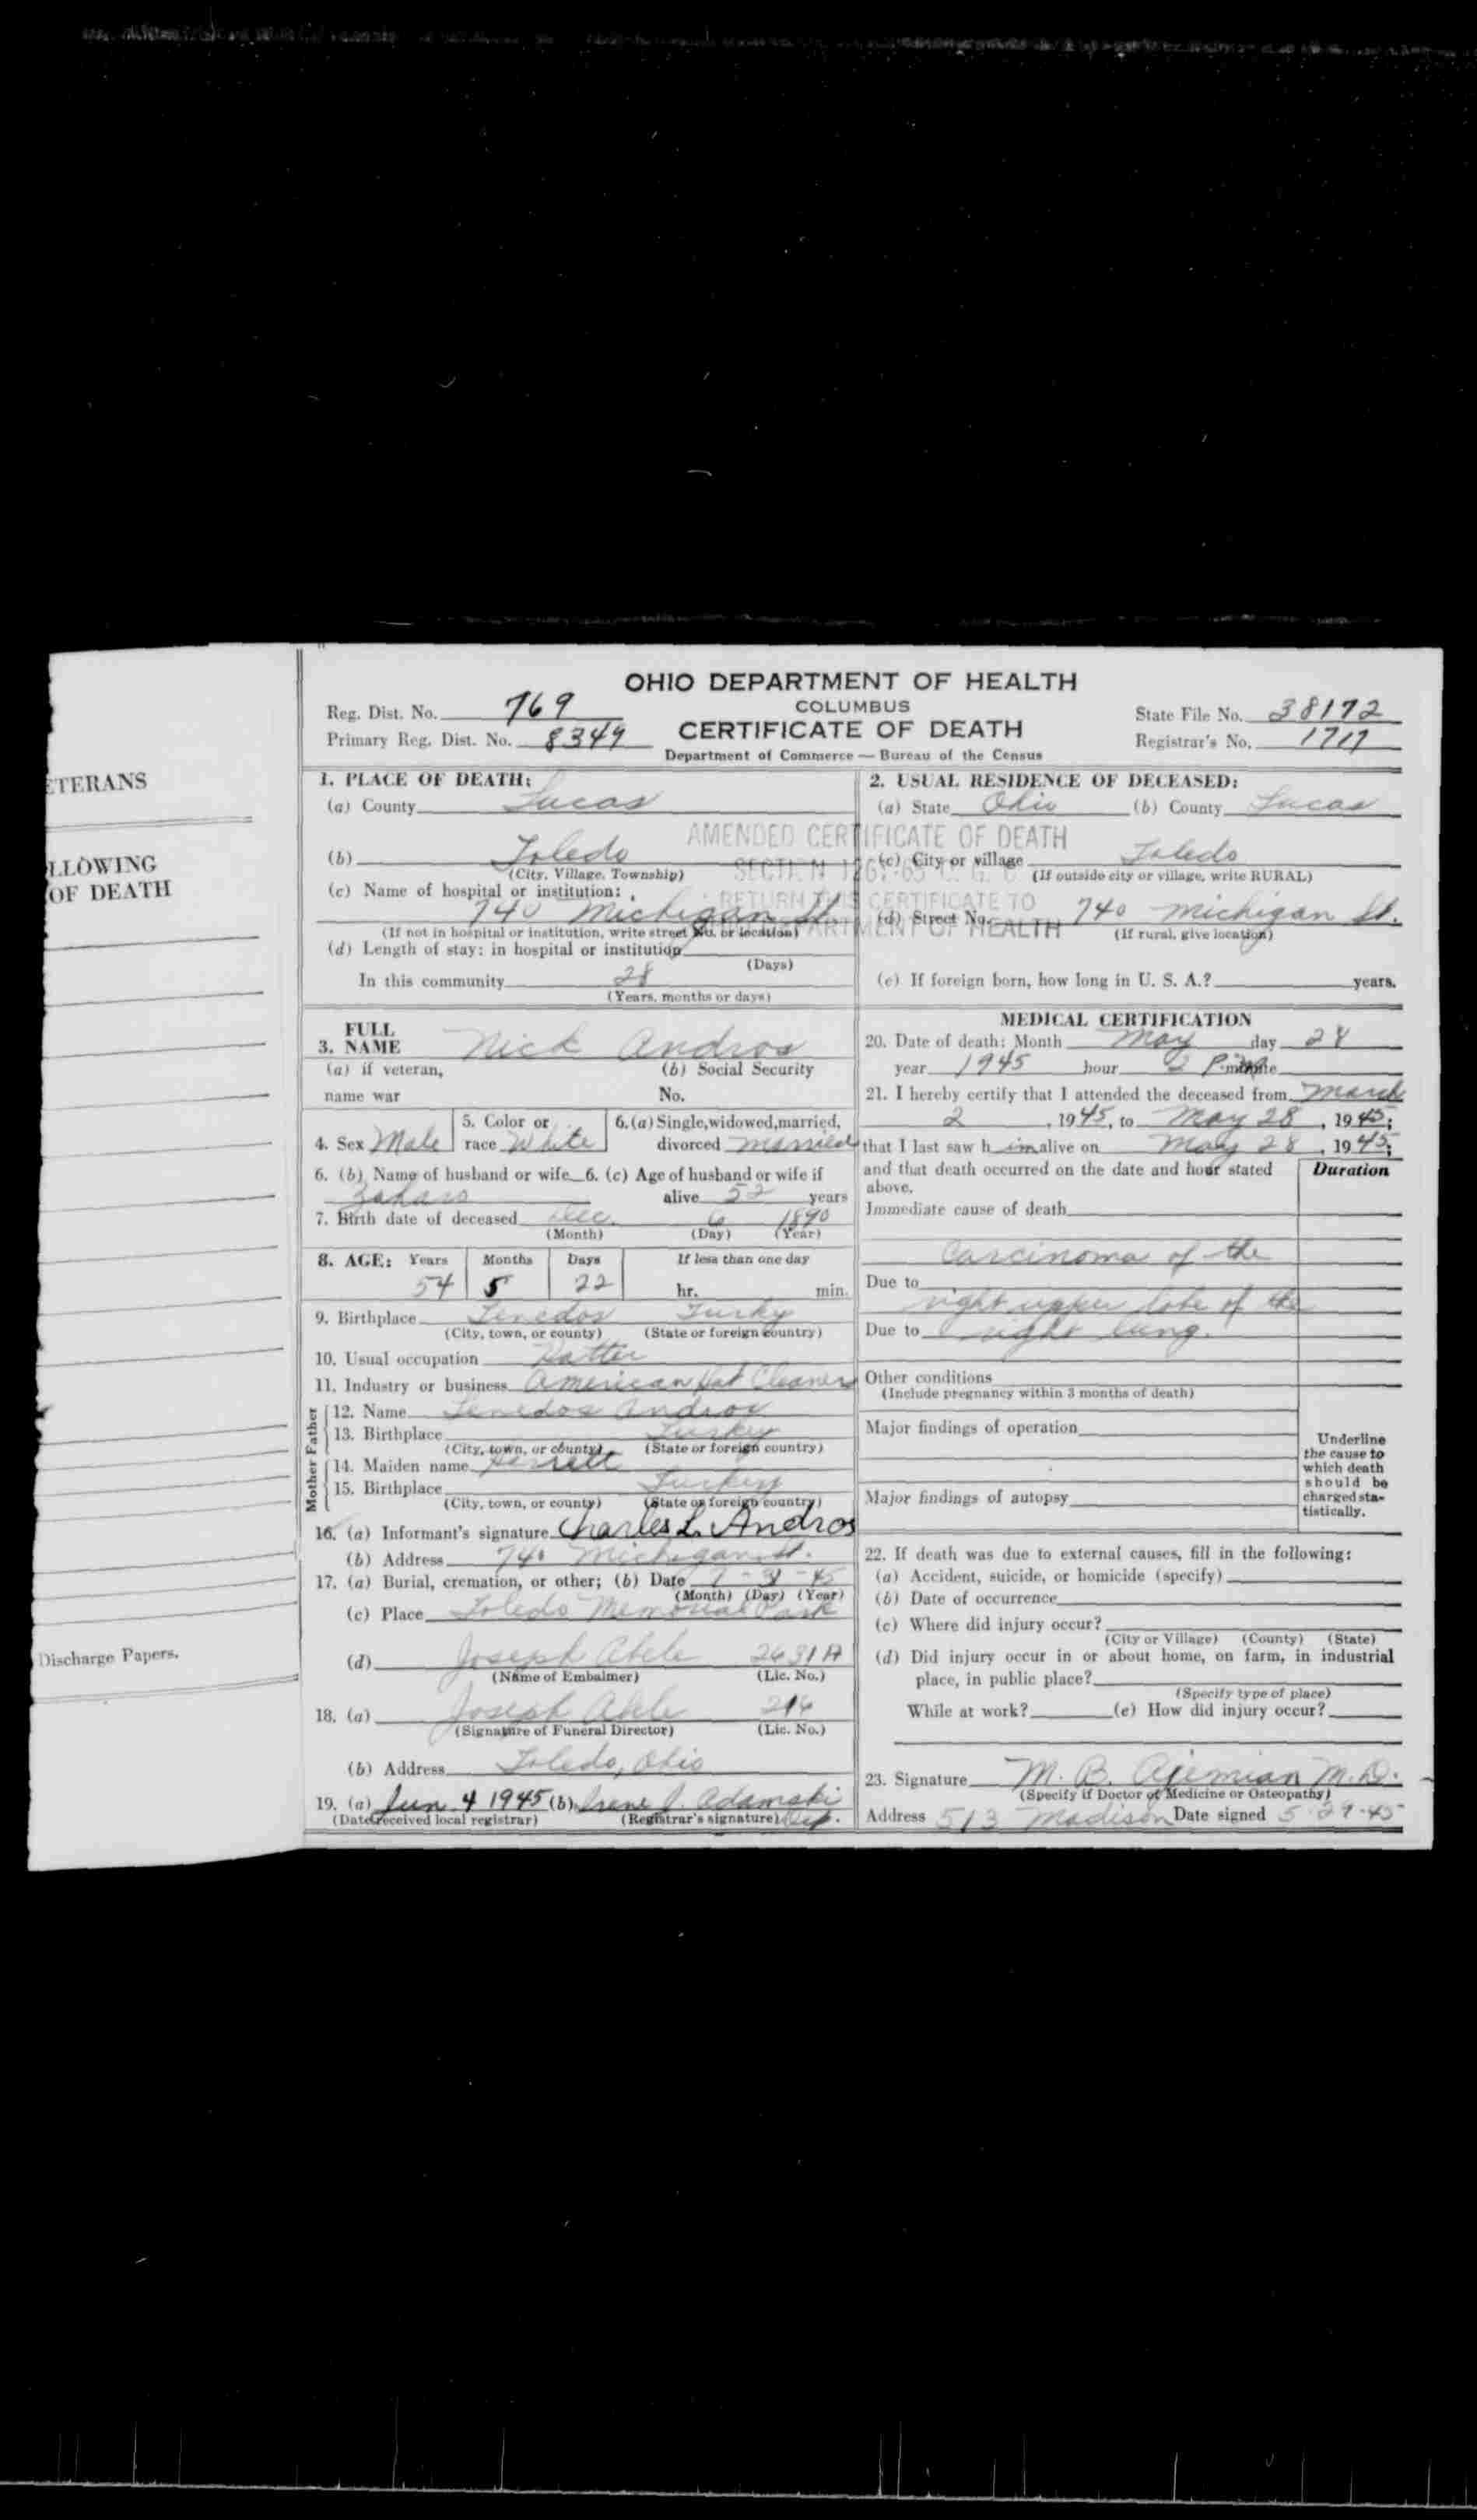 OHIO DEPARTMENT OF HEALTH
COLUMBUS
CERTIFICATE OF DEATH
Department of Commerce — Bureau of the Census
Reg. Dist. No. 769
Primary Reg. Dist. No. 8349
State File No. 38172
Registrar's No. 1717
ETERANS
LLOWING
OF DEATH
Discharge Papers.
AMENDED CERTIFICATE OF DEATH
RETURN THIS CERTIFICATE TO
DEPARTMENT OF HEALTH
1. PLACE OF DEATH:
(a) County Lucas
(b) Toledo
(City, Village, Township)
(c) Name of hospital or institution:
740 Michigan St.
(If not in hospital or institution, write street No. or location)
(d) Length of stay: in hospital or institution
(Days)
In this community 28
(Years, months or days)
2. USUAL RESIDENCE OF DECEASED:
(a) State Ohio (b) County Lucas
(c) City or village Toledo
(If outside city or village, write RURAL)
(d) Street No. 740 Michigan St.
(If rural, give location)
(e) If foreign born, how long in U. S. A.? years.
FULL
3. NAME Nick Andros
(a) if veteran, (b) Social Security
name war No.
4. Sex Male 5. Color or race White 6. (a) Single, widowed, married, divorced married
6. (b) Name of husband or wife 6. (c) Age of husband or wife if
alive 52 years
7. Birth date of deceased Dec. 6 1890
(Month) (Day) (Year)
8. AGE: Years Months Days If less than one day
54 5 22 hr. min.
9. Birthplace Tenedos Turky
(City, town, or county) (State or foreign country)
10. Usual occupation Hatter
11. Industry or business American Hat Cleaners
Father
12. Name Tenedos Andros
13. Birthplace Turkey
(City, town, or county) (State or foreign country)
Mother
14. Maiden name
15. Birthplace Turkey
(City, town, or county) (State or foreign country)
16. (a) Informant's signature Charles L. Andros
(b) Address 740 Michigan St.
17. (a) Burial, cremation, or other; (b) Date
(Month) (Day) (Year)
(c) Place Toledo Memorial Park
(d) Joseph Abele 2631A
(Name of Embalmer) (Lic. No.)
18. (a) Joseph Abele
(Signature of Funeral Director) (Lic. No.)
(b) Address Toledo, Ohio
19. (a) Jun 4 1945 (b) Irene J. Adamski
(Date received local registrar) (Registrar's signature) Dep.
MEDICAL CERTIFICATION
20. Date of death: Month May day 28
year 1945 hour 2 P. minute
21. I hereby certify that I attended the deceased from March
2, 1945, to May 28, 1945;
that I last saw h im alive on May 28, 1945;
and that death occurred on the date and hour stated above.
Duration
Immediate cause of death
Carcinoma of the
Due to
right upper lobe of the
Due to right lung.
Other conditions
(Include pregnancy within 3 months of death)
Major findings of operation
Major findings of autopsy
Underline the cause to which death should be charged statistically.
22. If death was due to external causes, fill in the following:
(a) Accident, suicide, or homicide (specify)
(b) Date of occurrence
(c) Where did injury occur?
(City or Village) (County) (State)
(d) Did injury occur in or about home, on farm, in industrial
place, in public place?
(Specify type of place)
While at work? (e) How did injury occur?
23. Signature M. B. Ajemian M.D.
(Specify if Doctor of Medicine or Osteopathy)
Address 513 Madison Date signed 5-29-45